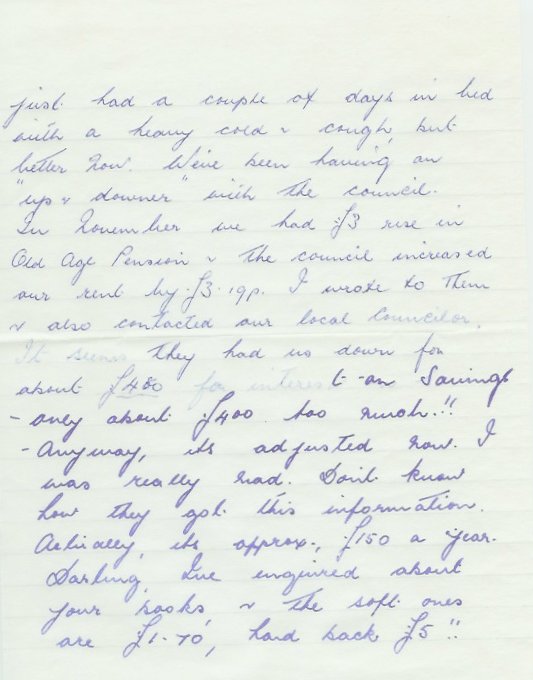 just had a couple of days in bed
with a heavy cold & cough, but
better now. We've been having an
"up & downer" with the council.
In November we had £3 rise in
Old Age Pension & the council increased
our rent by £3.19p. I wrote to them
& also contacted our local Councilor.
It seems they had us down for
about £480 for interest on Savings
- only about £400 too much!!
- Anyway, its adjusted now. I
was really mad. Dont know
how they got this information.
Actually, its approx, £150 a year.
Darling, I've enquired about
your books, & the soft ones
are £1-70, hard back £5!!